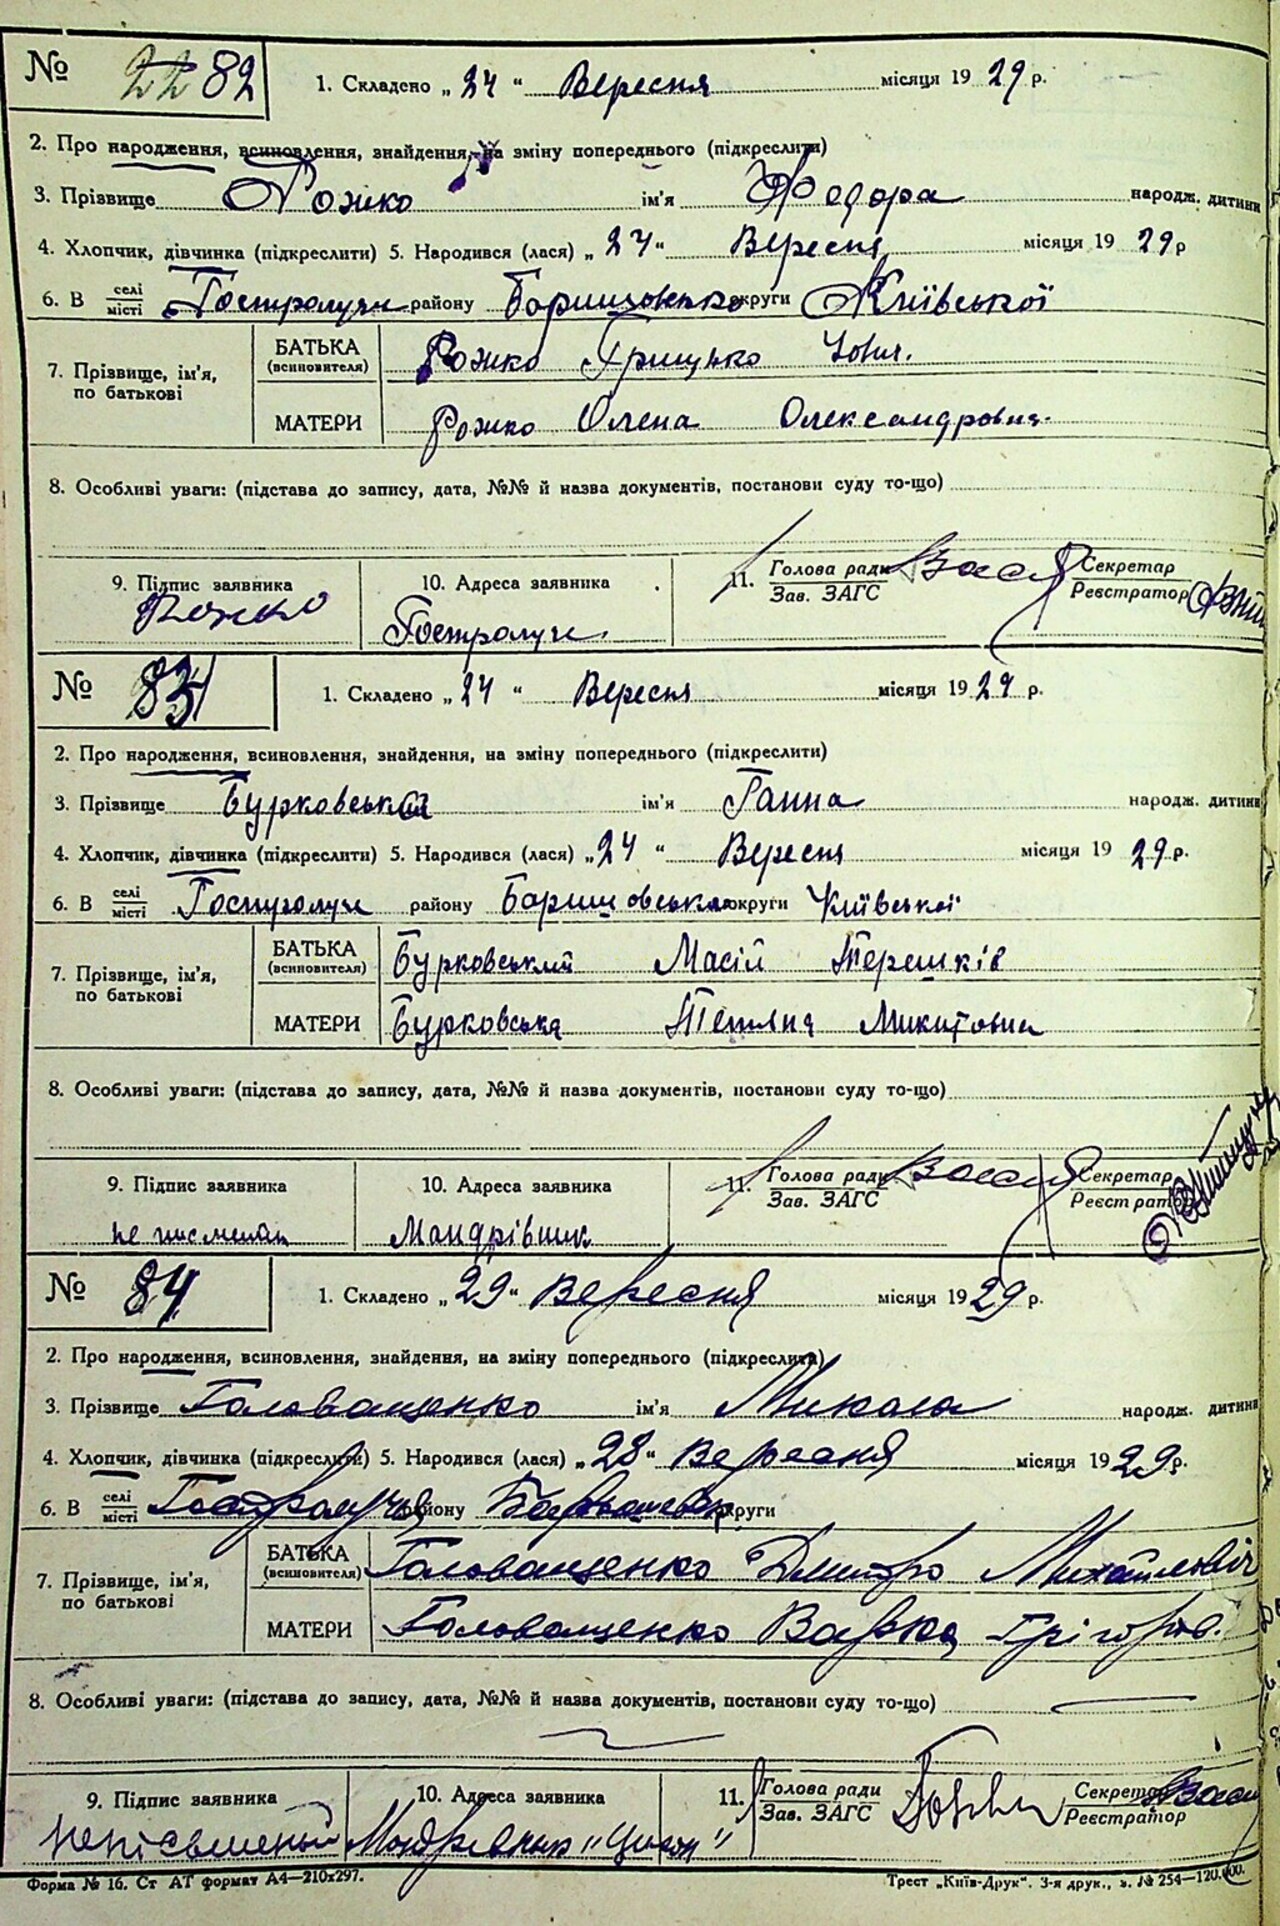 № 22 82 1. Складено „24“ Вересня місяця 1929 р.
2. Про народження, всиновлення, знайдення, на зміну попереднього (підкреслити)
3. Прізвище Рожко ім'я Федора народж. дитини
4. Хлопчик, дівчинка (підкреслити) 5. Народився (лася) „24“ Вересня місяця 1929 р
6. В селі/місті Гостролучи району Баришовско округи Київської
7. Прізвище, ім'я, по батькові
БАТЬКА (всиновителя) Рожко Грицько
МАТЕРИ Рожко Олена Олександровна
8. Особливі уваги: (підстава до запису, дата, №№ й назва документів, постанови суду то-що)
9. Підпис заявника 10. Адреса заявника 11. Голова ради/Зав. ЗАГС Секретар/Реєстратор
Рожко Гостролучи
№ 83 1. Складено „24“ Вересня місяця 1929 р.
2. Про народження, всиновлення, знайдення, на зміну попереднього (підкреслити)
3. Прізвище Бурковська ім'я Ганна народж. дитини
4. Хлопчик, дівчинка (підкреслити) 5. Народився (лася) „24“ Вересня місяця 1929 р.
6. В селі/місті Гостролучи району Баришовсько округи Київської
7. Прізвище, ім'я, по батькові
БАТЬКА (всиновителя) Бурковський Масій Терешків
МАТЕРИ Бурковська Тетяна Микитовна
8. Особливі уваги: (підстава до запису, дата, №№ й назва документів, постанови суду то-що)
9. Підпис заявника 10. Адреса заявника 11. Голова ради/Зав. ЗАГС Секретар/Реєстратор
не писменн Мандрівник
№ 84 1. Складено „29“ Вересня місяця 1929 р.
2. Про народження, всиновлення, знайдення, на зміну попереднього (підкреслити)
3. Прізвище Головащенко ім'я Микола народж. дитини
4. Хлопчик, дівчинка (підкреслити) 5. Народився (лася) „28“ Вересня місяця 1929 р.
6. В селі/місті Гостролучча району Баришевск округи
7. Прізвище, ім'я, по батькові
БАТЬКА (всиновителя) Головащенко Дмитро Михайлович
МАТЕРИ Головащенко Варка Грігоров.
8. Особливі уваги: (підстава до запису, дата, №№ й назва документів, постанови суду то-що)
9. Підпис заявника 10. Адреса заявника 11. Голова ради/Зав. ЗАГС Секретар/Реєстратор
непісьменый Мандревнык „Циган”
Форма № 16. Ст АТ формат А4—210х297. Трест „Київ-Друк“. 3-я друк., з. № 254—120.000.